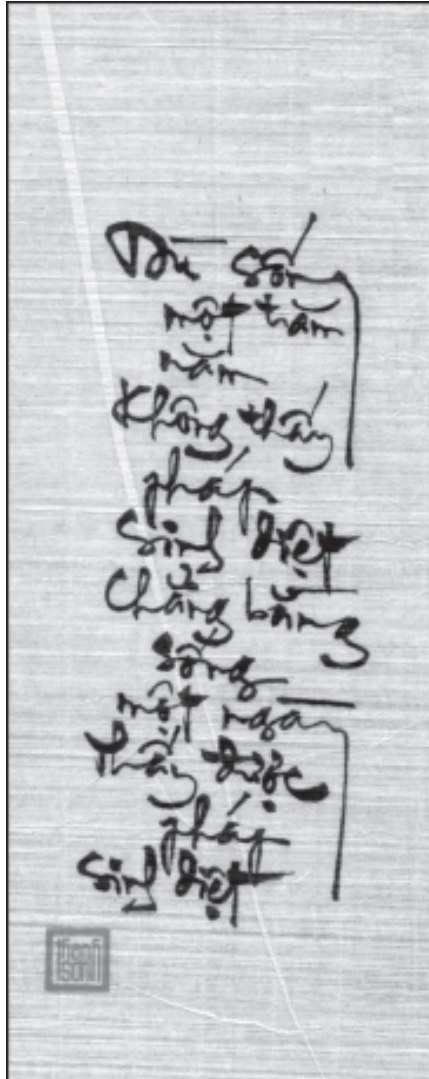 Dù sống
một trăm
năm
Không thấy
pháp
Sinh diệt
Chẳng bằng
Sống
một ngày
Thấy được
pháp
Sinh diệt